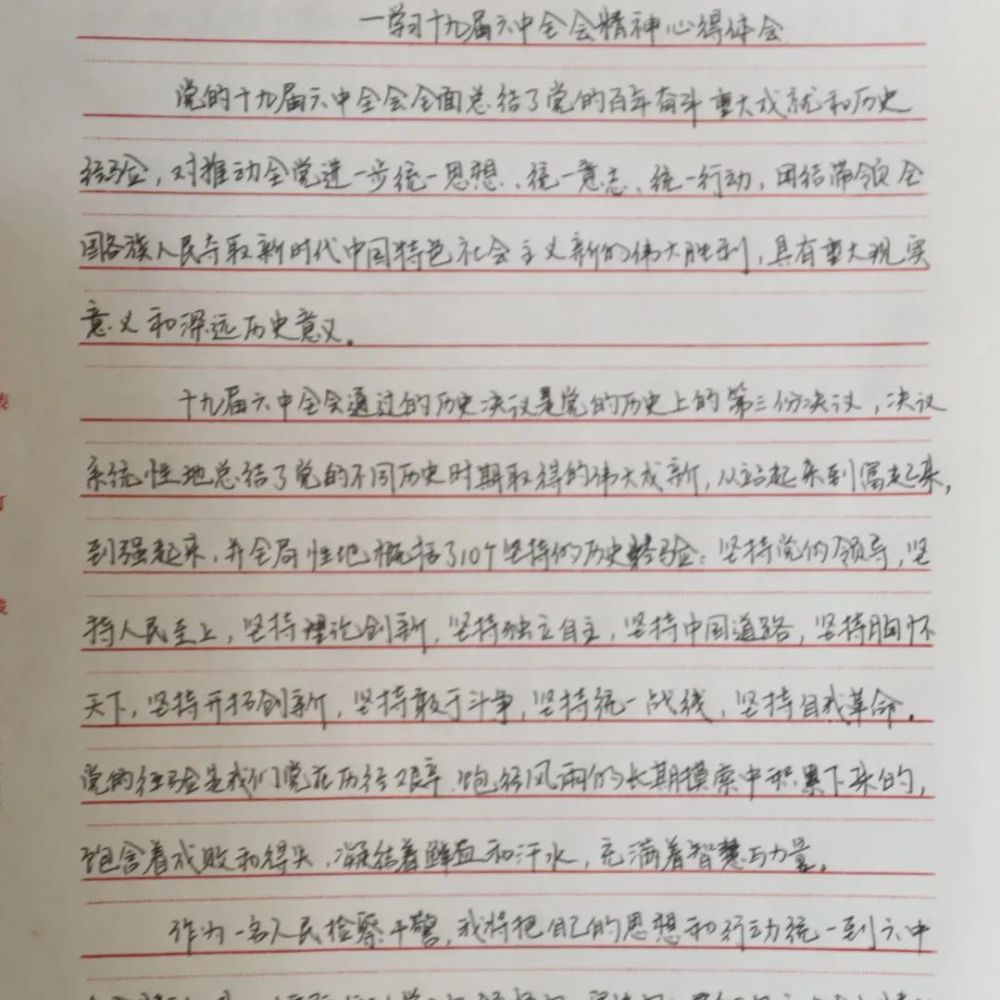 一学习十九届六中全会精神心得体会
党的十九届六中全会全面总结了党的百年奋斗重大成就和历史
经验，对推动全党进一步统一思想、统一意志、统一行动，团结带领全
国各族人民夺取新时代中国特色社会主义新的伟大胜利，具有重大现实
意义和深远历史意义。
十九届六中全会通过的历史决议是党的历史上的第三份决议，决议
系统性地总结了党的不同历史时期取得的伟大成新，从站起来到富起来，
到强起来，并全局性地概括了10个坚持的历史经验：坚持党的领导，坚
持人民至上，坚持理论创新，坚持独立自主，坚持中国道路，坚持胸怀
天下，坚持开拓创新，坚持敢于斗争，坚持统一战线，坚持自我革命。
党的经验是我们党在历经艰辛、饱经风雨的长期摸索中积累下来的，
饱含着成败和得失，凝结着鲜血和汗水，充满着智慧与力量。
作为一名人民检察干警，我将把自己的思想和行动统一到六中
装
订
线